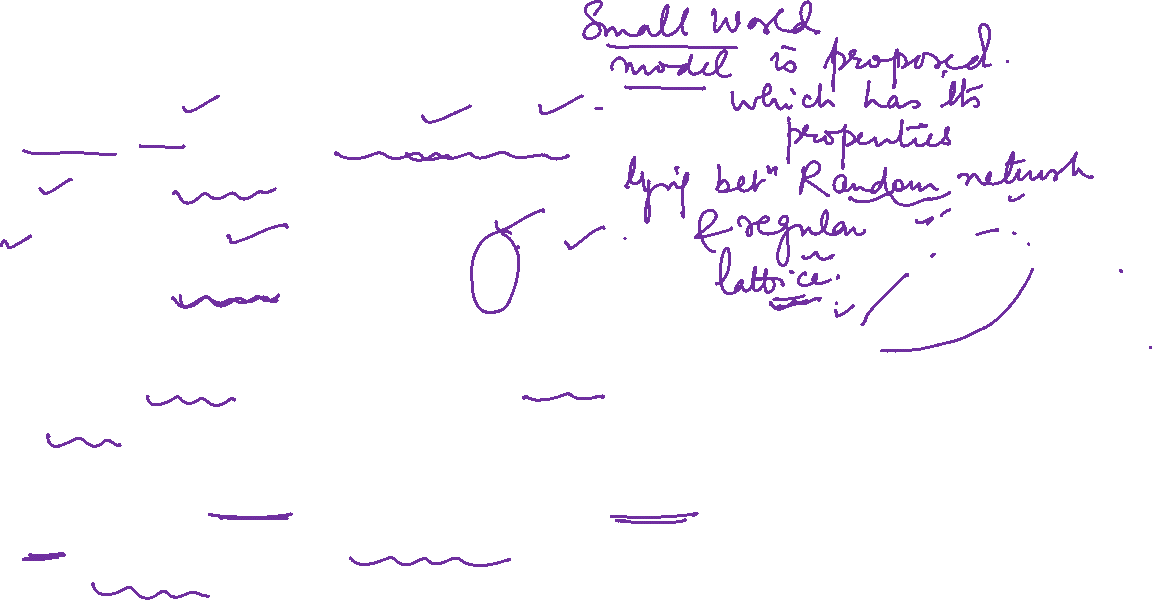 Small World
model is proposed.
which has its
properties
lying betⁿ Random network
& regular
lattice.